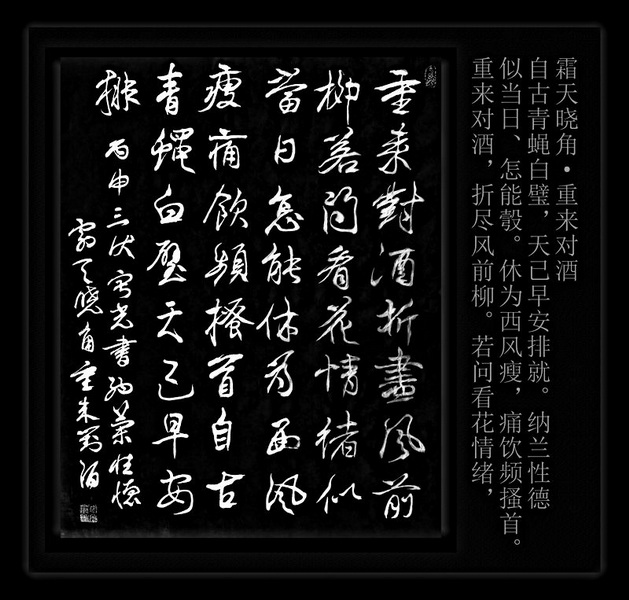 重来對酒折盡風前
柳若问看花情緒似
當日怎能休为西風
瘦痛飲頻搔首自古
青蠅白璧天已早安
排
丙申三伏 書納蘭性德
霜天晓角重来對酒
重来对酒，折尽风前柳。若问看花情绪，
似当日、怎能彀。休为西风瘦，痛饮频搔首。
自古青蝇白璧，天已早安排就。纳兰性德
霜天晓角•重来对酒